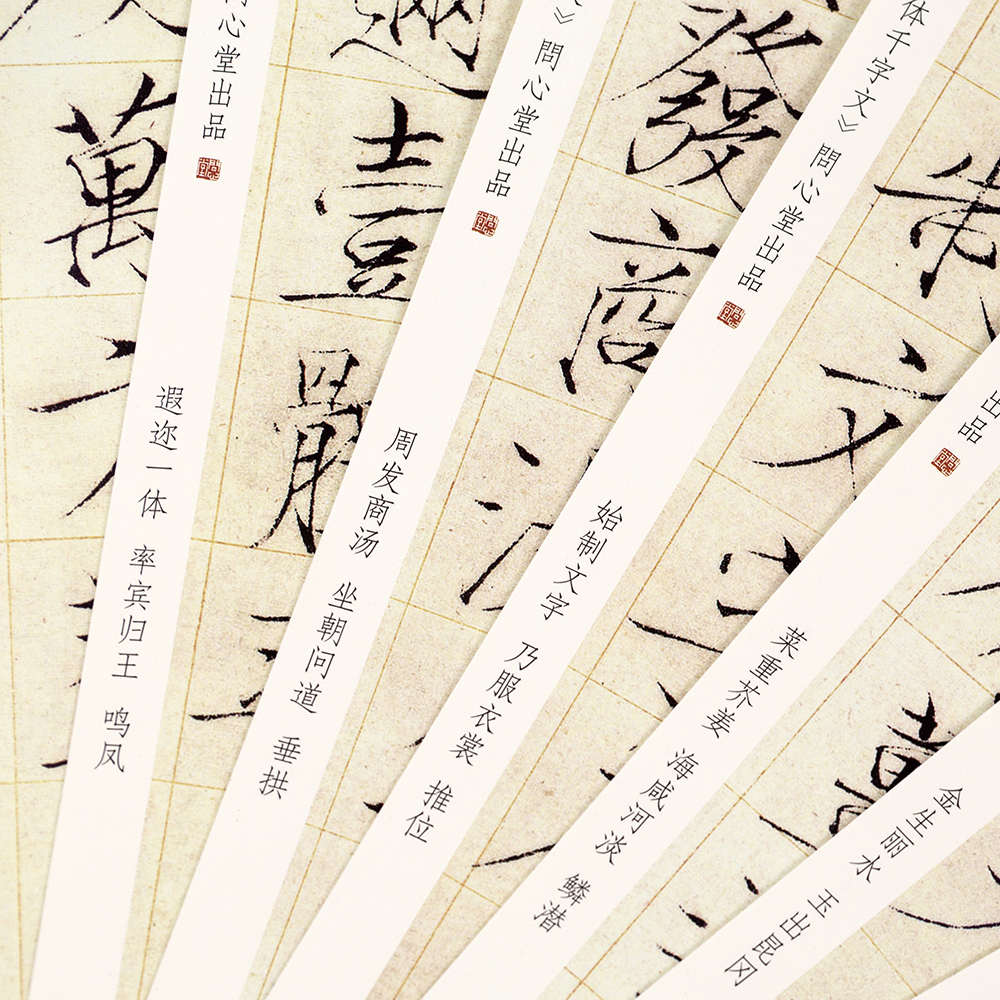 萬方
心堂出品
遐迩一体 率宾归王 鸣凤
邇壹體
》問心堂出品
周发商汤 坐朝问道 垂拱
發商湯
体千字文》問心堂出品
始制文字 乃服衣裳 推位
制文字
出品
菜重芥姜 海咸河淡 鳞潜
金生丽水 玉出昆冈